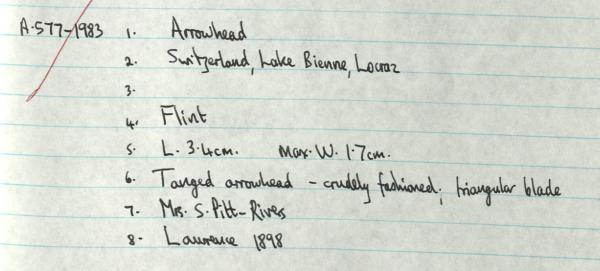 A.577-1983 1. Arrowhead
2. Switzerland, Lake Bienne, Locraz
3.
4. Flint
5. L. 3.4cm. Max. W. 1.7cm.
6. Tanged arrowhead - crudely fashioned; triangular blade
7. Mrs. S. Pitt-Rivers
8. Lawrence 1898